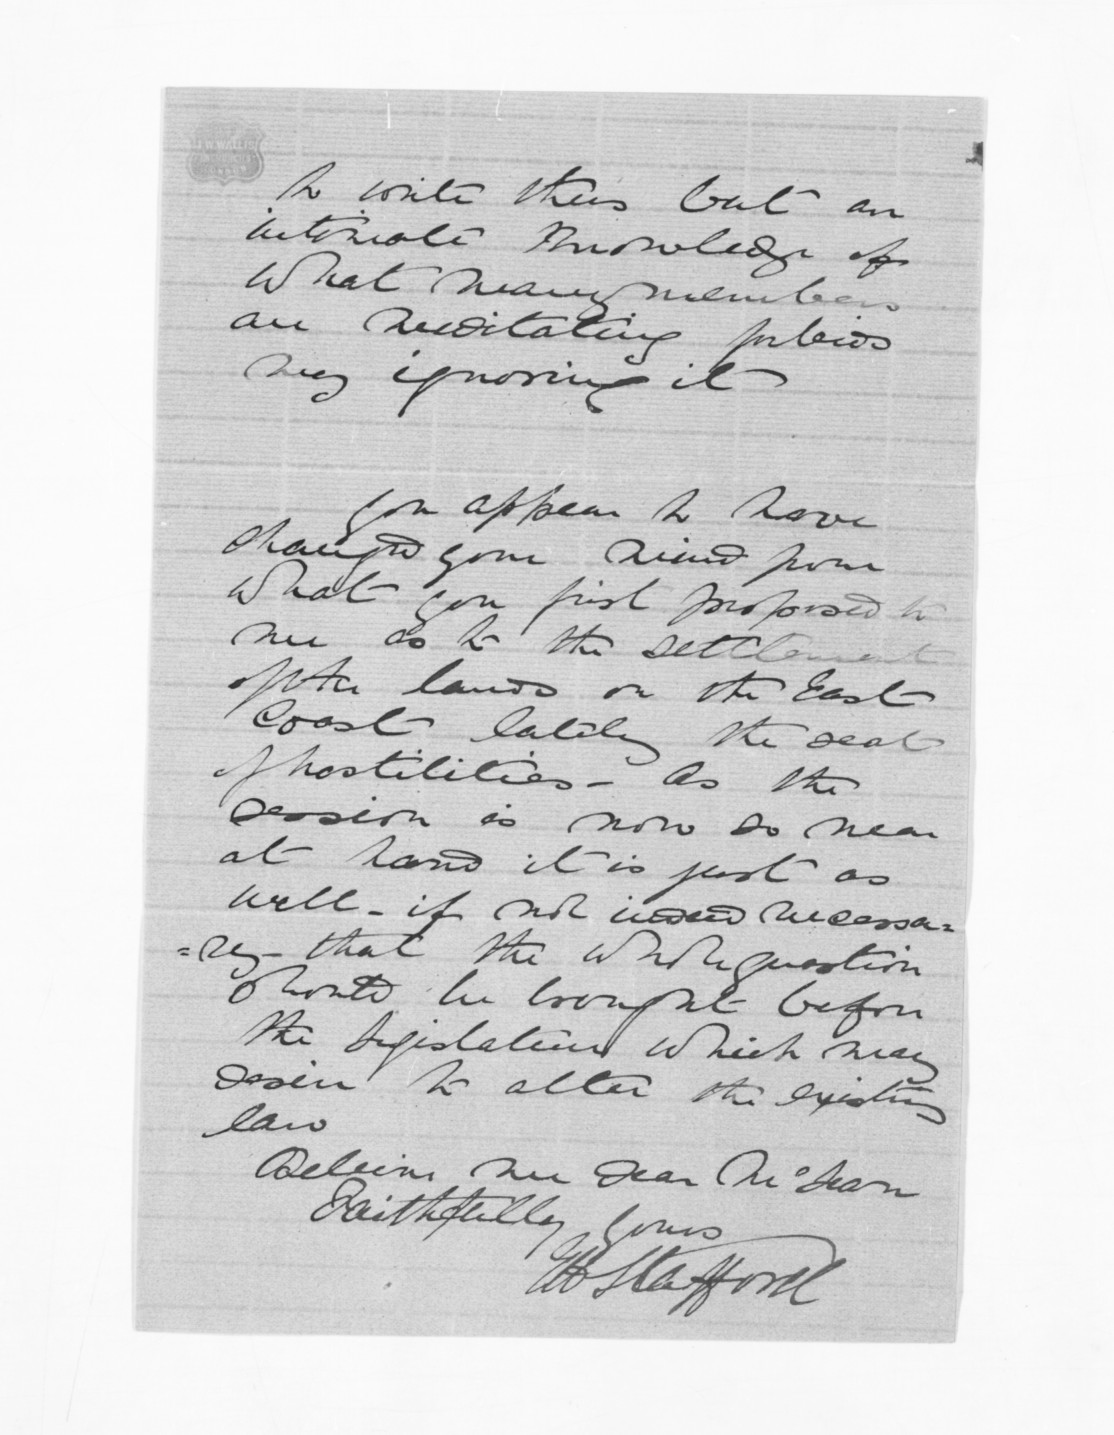 J.W. WALLIS
to write thus but an
intimate knowledge of
what many members
are meditating forbids
my ignoring it
You appear to have
changed your mind from
what you first proposed to
me as to the settlement
of the lands on the East
Coast lately the seat
of hostilities - As the
session is now so near
at hand it is just as
well - if not indeed necessa=
=ry - that the whole question
should be brought before
the Legislature which may
desire to alter the existing
law
Believe me dear McLean
Faithfully yours
EW Stafford